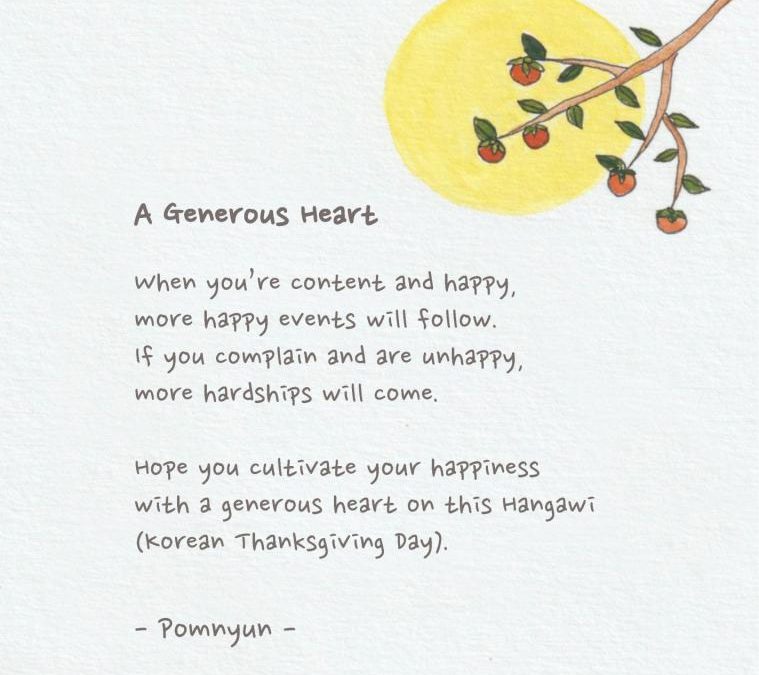 A Generous Heart
When you're content and happy,
more happy events will follow.
If you complain and are unhappy,
more hardships will come.
Hope you cultivate your happiness
with a generous heart on this Hangawi
(Korean Thanksgiving Day).
- Pomnyun -